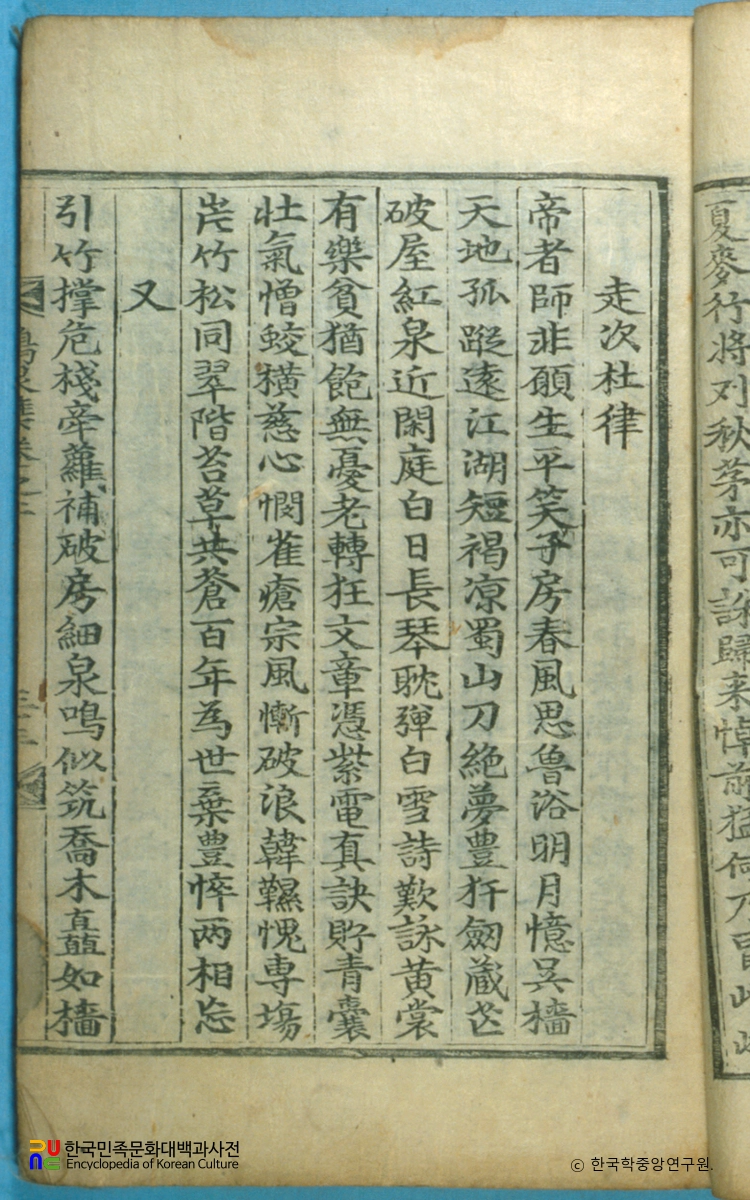 夏麥行將刈秋茅亦可誅歸来悼前猛何乃冒
走次杜律
帝者師非願生平笑子房春風思魯浴明月憶吳檣
天地孤蹤遠江湖短褐凉蜀山刀絶夢豊犴劒藏芒
破屋紅泉近閑庭白日長琴耽弾白雪詩歎詠黄裳
有樂貧猶飽無憂老轉狂文章憑紫電真訣貯青囊
壯氣憎鮫横慈心憫雀瘡宗風慚破浪韓愧専場
竹松同翠階苔草共蒼百年為世棄豊悴两相忘
又
引竹撑危棧牽蘿補破房細泉鳴似筑喬木矗如檣
集卷之二
한국민족문화대백과사전
Encyclopedia of Korean Culture
ⓒ 한국학중앙연구원.